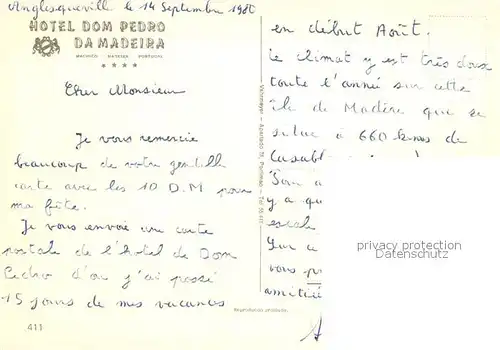 Anglesqueville le 14 Septembre 1980
HOTEL DOM PEDRO
DA MADEIRA
MACHICO MADEIRA PORTUGAL
Cher Monsieur
Je vous remercie
beaucoup de votre gentille
carte avec les 10 D.M pour
ma fête.
Je vous envoie une carte
postale de l'hotel de Dom
Pedro d'ou j'ai passé
15 jours de mes vacances
411
Reprodução proibida.
en début Août.
Le climat y est très doux
toute l'année sur cette
île de Madère que se
situe à 660 kms de
Casabl
Son a
y a qu
escal
Par a
vous pr
amitié
privacy protection
Datenschutz